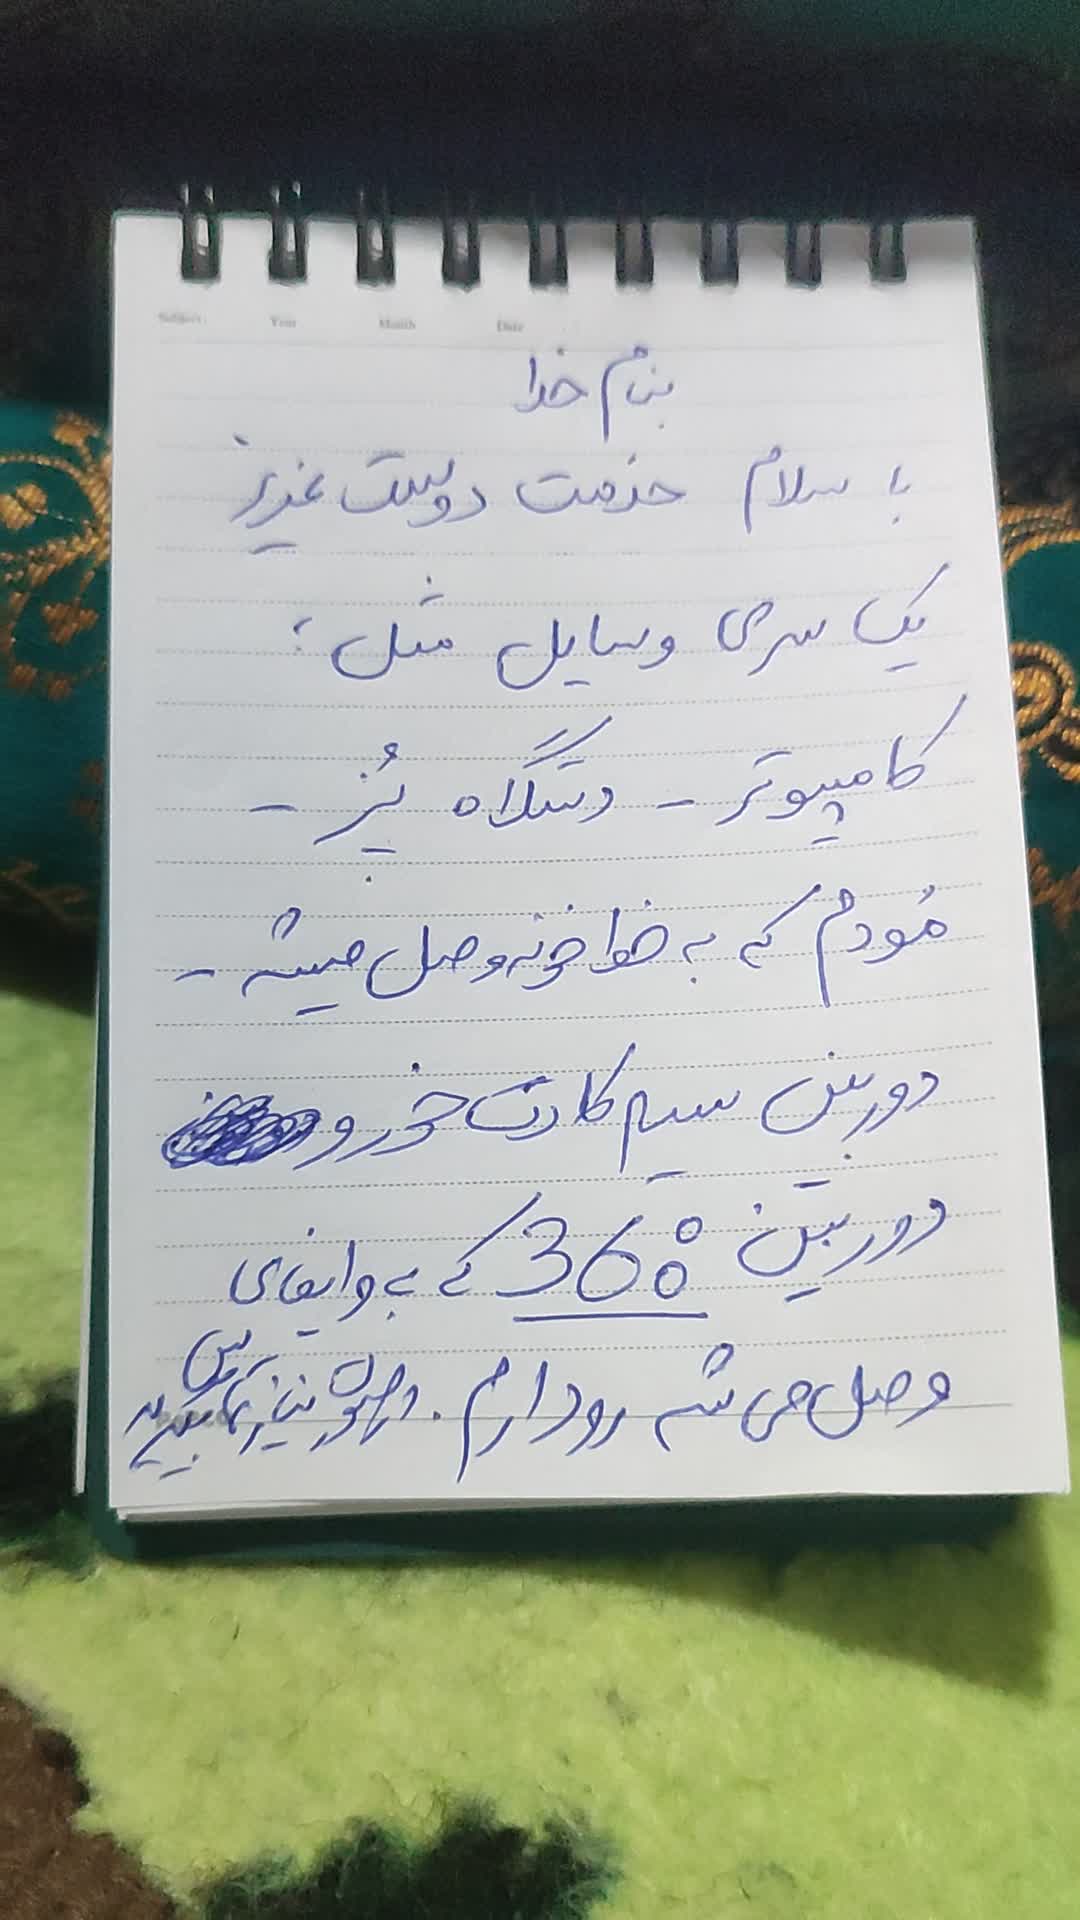 Subject: Year Month Date
بنام خدا
با سلام خدمت دوست عزیز
یک سری وسایل مثل:
کامپیوتر - دستگاه پُز -
مُودم که به خط خونه وصل میشه -
دوربین سیم کارت خور و
دوربین 360° که به وایفای
وصل می شه رو دارم. نیاز تماس بگیرید